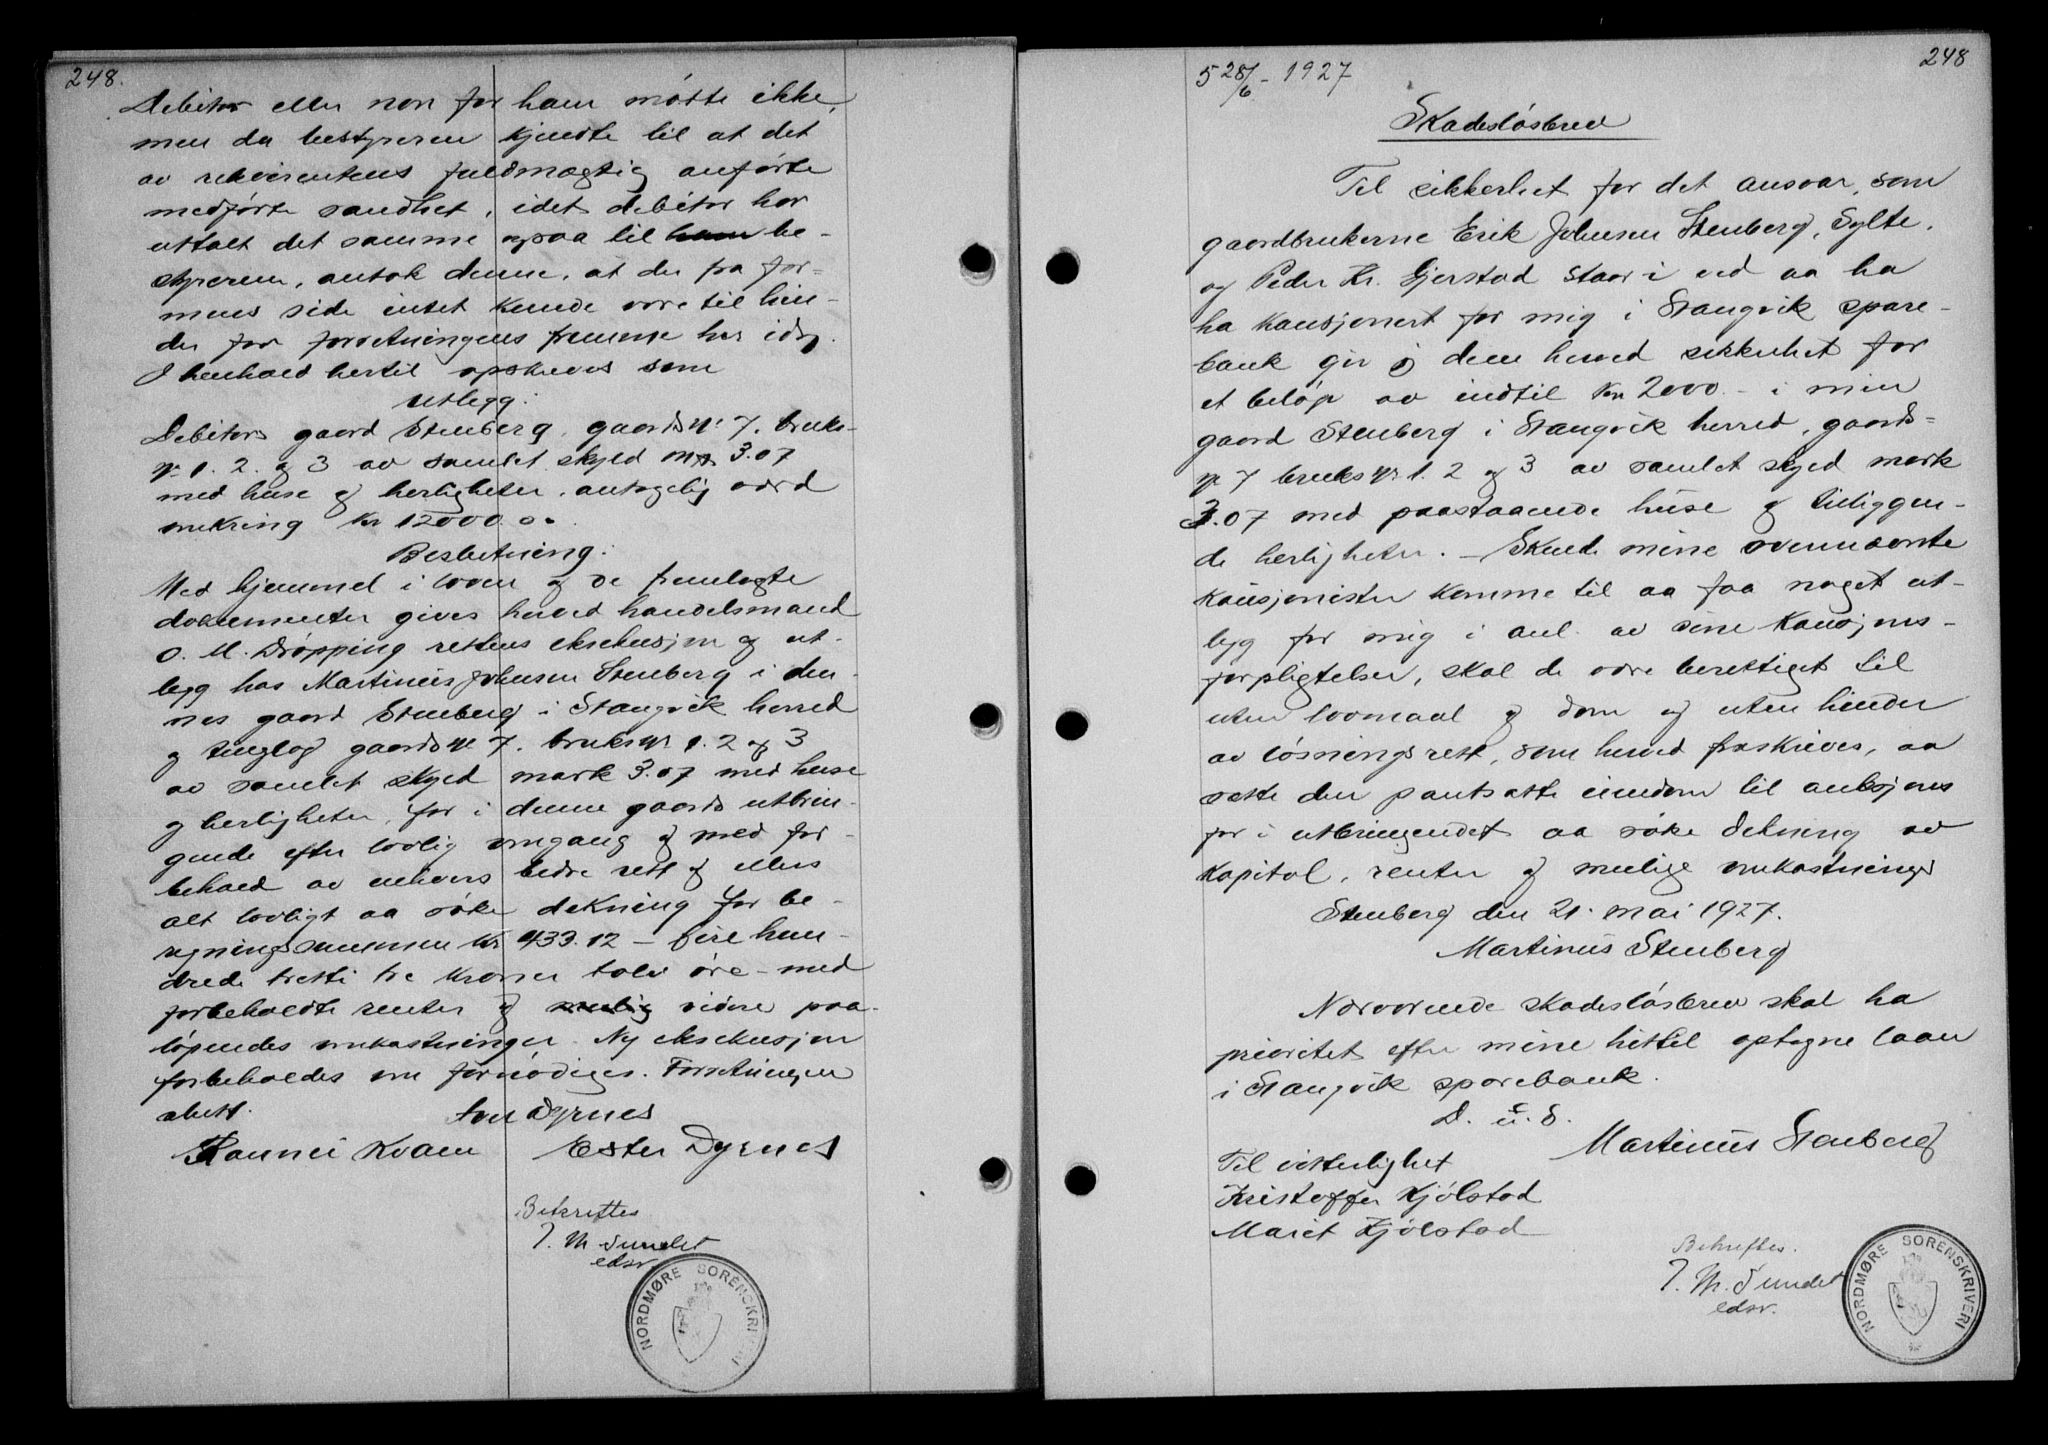 248.
Debitor eller non for ham møtte ikke,
men da bestyreren kjendte til at det
av rekvirentens fuldmægtig anførte
medførte sandhet, idet debitor har
uttalt det samme ogsaa til ham be-
styreren, antok denne, at der fra for-
mens side intet kunde være til hin-
der for forretningens fremme her idag.
I henhold hertil opskreves som
Utlegg:
Debitors gaard Stenberg, gaards nr. 7. bruks-
nr. 1. 2. og 3 av samlet skyld mark 3.07
med huse og herligheter, antagelig værd
omkring kr 12000.00.
Beslutning:
Med hjemmel i loven og de fremlagte
dokumenter gives herved handelsmand
O. M. Drøpping rettens eksekusjon og ut-
legg hos Martinus Johnsen Stenberg i den-
nes gaard Stenberg i Stangvik herred
og tinglag gaards nr 7. bruks nr. 1. 2 og 3
av samlet skyld mark 3.07 med huse
og herligheter, for i denne gaards utbrin-
gende efter lovlig omgang og med for-
behold av enhvers bedre rett og ellers
alt lovligt aa søke dekning for be-
regningssummen kr 433.12 – fire hun-
drede tretti tre kroner tolv øre – med
forbeholdte renter og mulig videre paa-
løpendes omkostninger. Ny eksekusjon
forbeholdes om fornødiges. Forretningen
slutt.
Iver Dyrnes
Rannei Kvam Ester Dyrnes
Bekreftes
J. M Sundet
edsv.
NORDMØRE SORENSKRIVERI
248
5 28/6 - 1927
Skadesløsbrev
Til sikkerhet for det ansvar, som
gaardbrukerne Erik Johnsen Stenberg, Sylte,
og Peder Kr. Gjerstad staar i ved aa ha
ha kausjonert for mig i Stangvik spare-
bank gir jeg dem herved sikkerhet for
et beløp av indtil kr 2000.- i min
gaard Stenberg i Stangvik herred, gaards-
nr 7 bruks nr. 1. 2 og 3 av samlet skyld mark
3.07 med paastaaende huse og tilliggen-
de herligheter. – Skulde mine ovennævnte
kausjonister komme til aa faa noget ut-
legg for mig i anl. av sine kausjons-
forpligtelser, skal de være berettiget til
uten lovmaal og dom og uten hinder
av løsningsrett, som herved fraskrives, aa
sette den pantsatte eiendom til auksjon
for i utbringendet aa søke dekning av
kapital, renter og mulige omkostninger
Stenberg den 21. mai 1927.
Martinus Stenberg
Nærværende skadesløsbrev skal ha
prioritet efter mine hittil optagne laan
i Stangvik sparebank.
D. u. S.
Martinus Stenberg
Til vitterlighet
Kristoffer Kjølstad
Marit Kjølstad
Bekreftes.
J. M. Sundet
edsv.
NORDMØRE SORENSKRIVERI